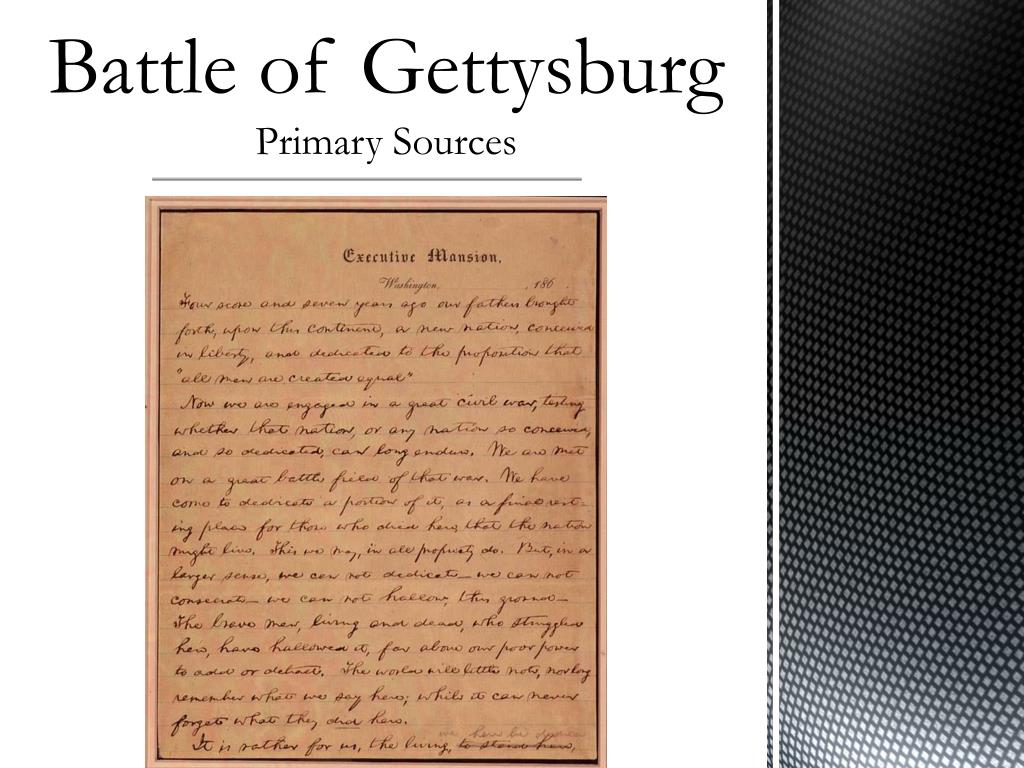 Battle of Gettysburg
Primary Sources
Executive Mansion,
Washington, , 186 .
Four score and seven years ago our fathers brought
forth, upon this continent, a new nation, conceived
in liberty, and dedicated to the proposition that
"all men are created equal"
Now we are engaged in a great civil war, testing
whether that nation, or any nation so conceived,
and so dedicated, can long endure. We are met
on a great battle field of that war. We have
come to dedicate a portion of it, as a final rest-
ing place for those who died here, that the nation
might live. This we may, in all propriety do. But, in a
larger sense, we can not dedicate— we can not
consecrate— we can not hallow, this ground—
The brave men, living and dead, who struggled
here, have hallowed it, far above our poor power
to add or detract. The world will little note, nor long
remember what we say here; while it can never
forget what they did here.
we here be dedica
It is rather for us, the living, to stand here,